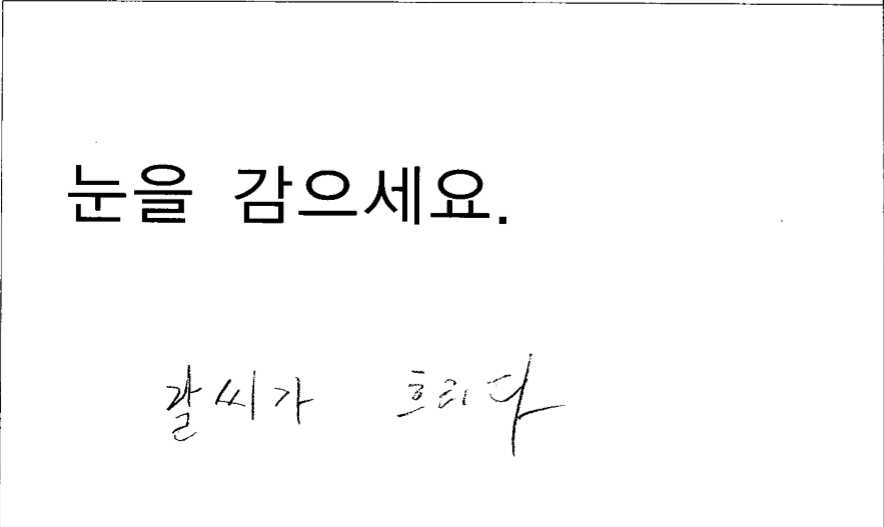 눈을 감으세요.
갈씨가 흐리다